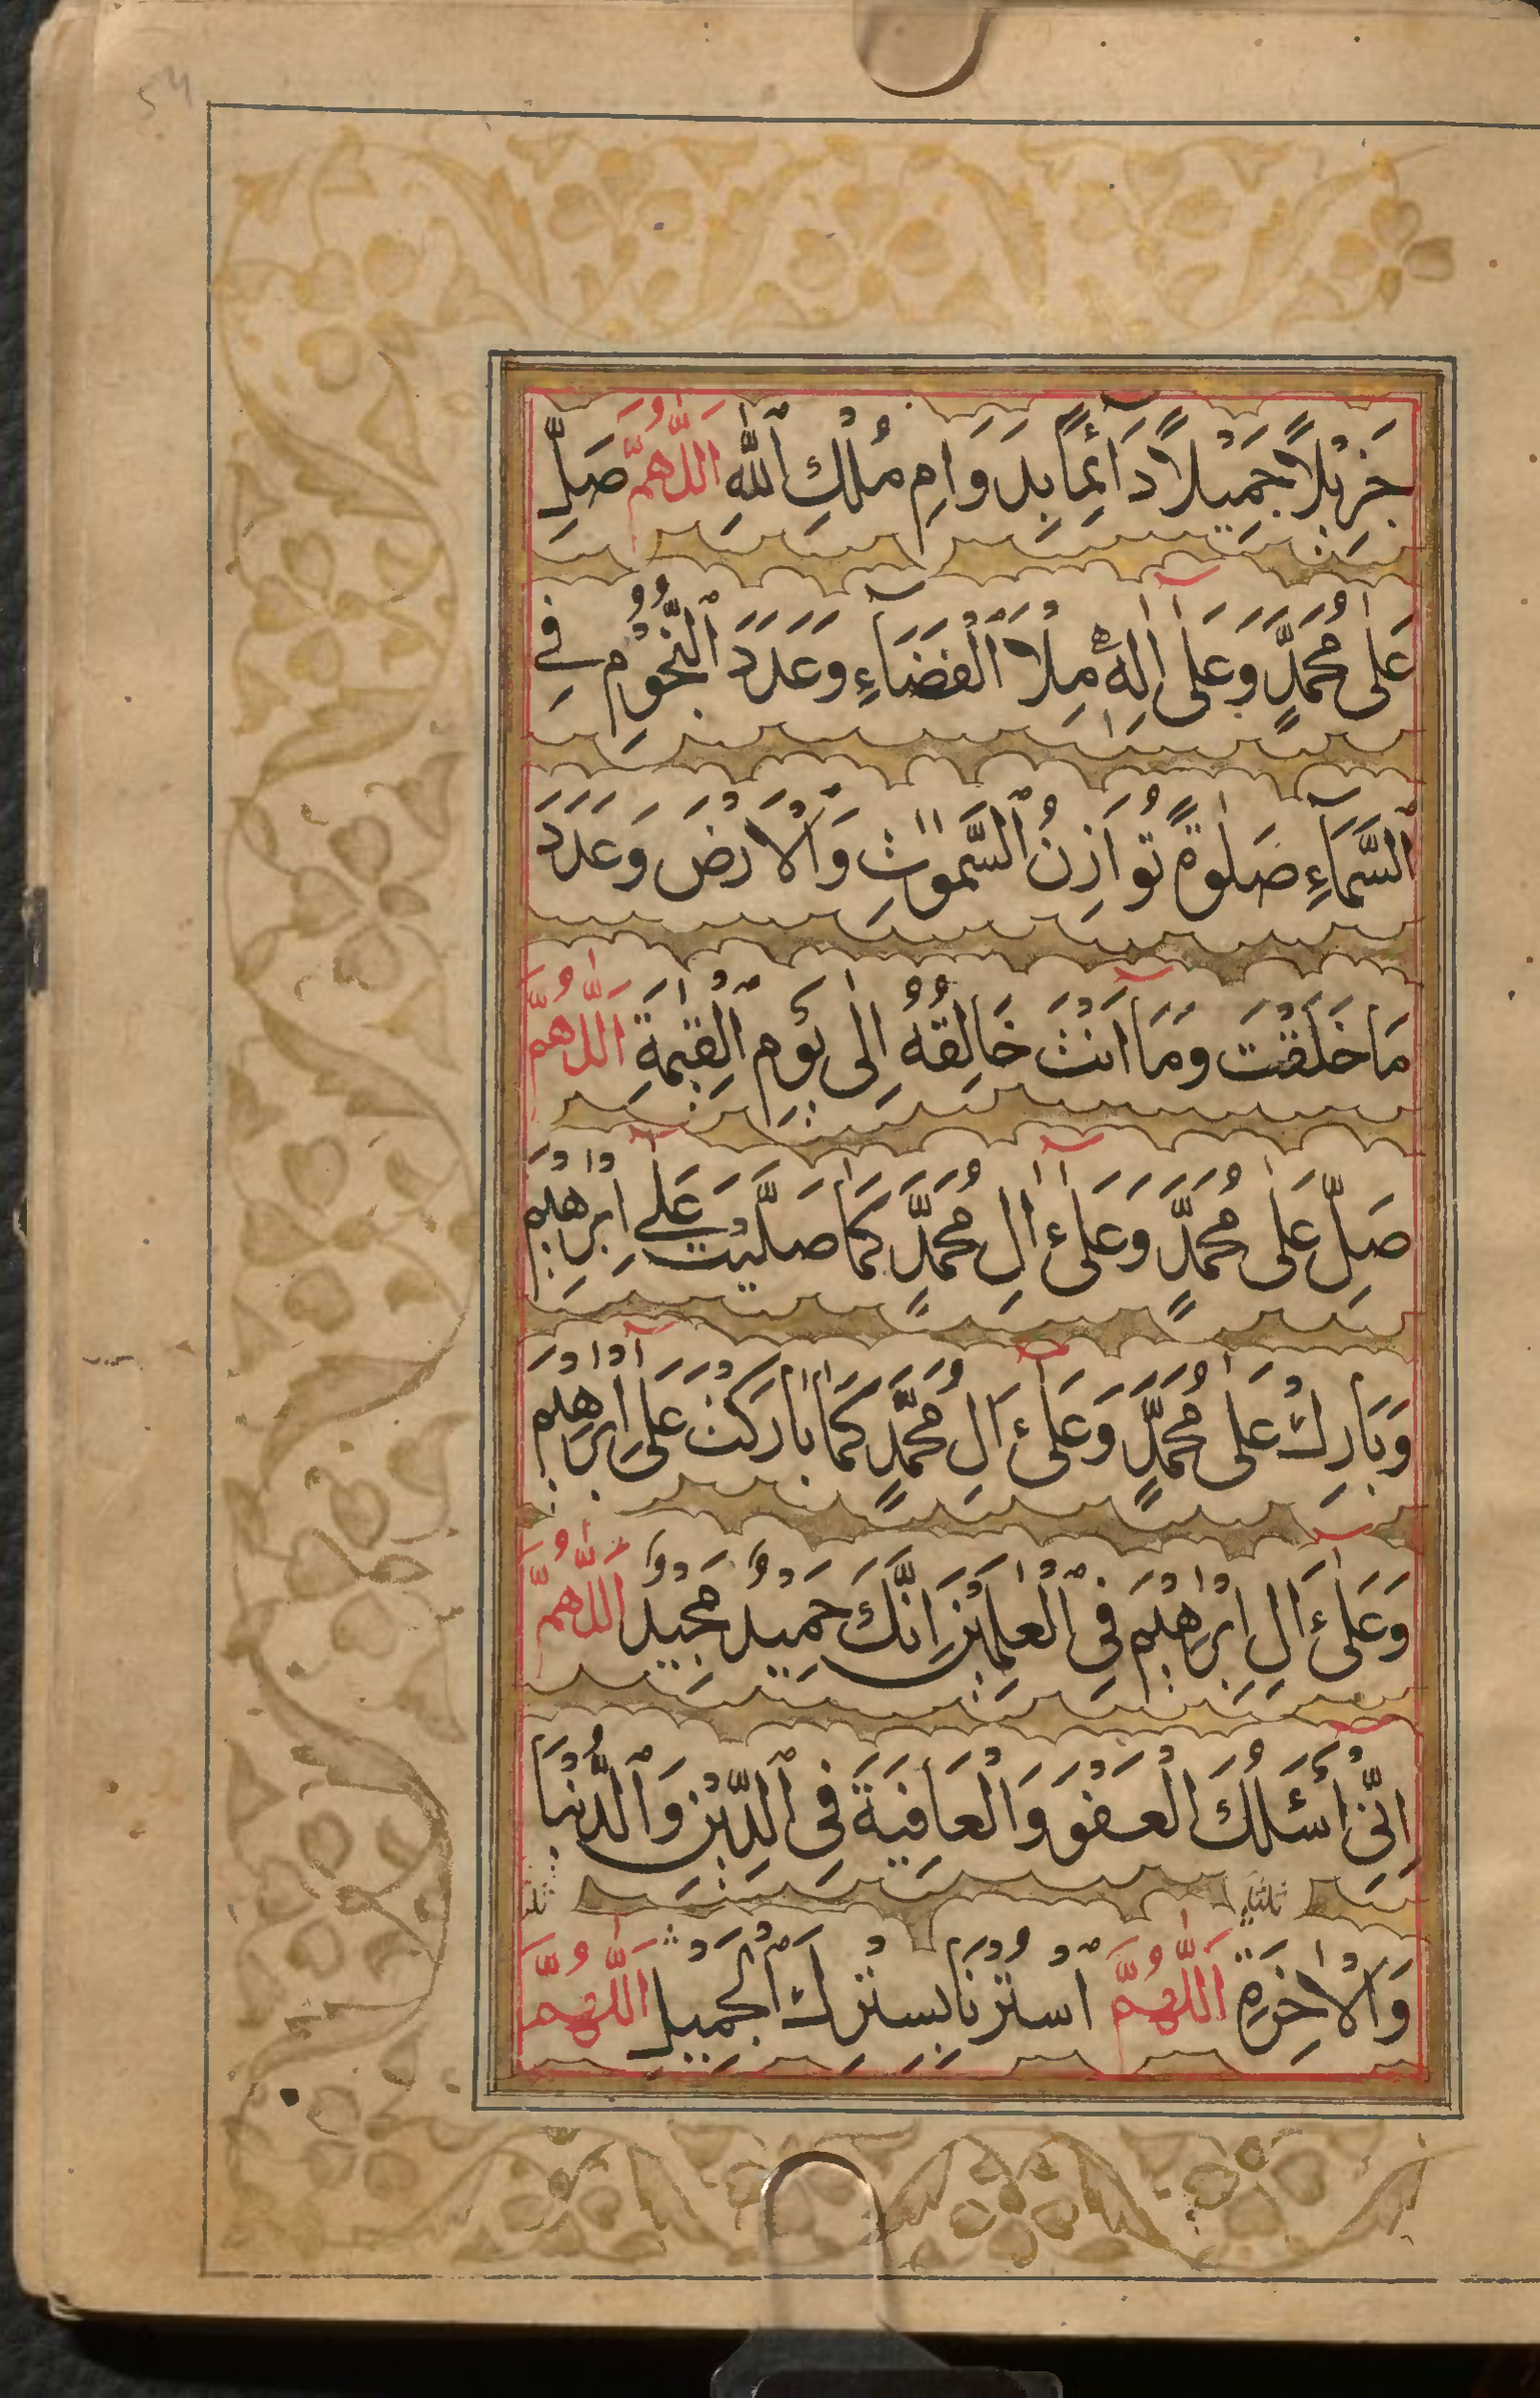 جَزِيْلًا جَمِيْلًا دَآئِمًا بِدَوَامِ مُلْكِ ٱللّٰهِ اَللّٰهُمَّ صَلِّ
عَلٰى مُحَمَّدٍ وَعَلٰٓى اٰلِهٖ مِلْأَ ٱلْفَضَآءِ وَعَدَدَ ٱلنُّجُوْمِ فِي
ٱلسَّمَآءِ صَلٰوةً تُوَازِنُ ٱلسَّمٰوٰتِ وَٱلْاَرْضَ وَعَدَدَ
مَا خَلَقْتَ وَمَآ اَنْتَ خَالِقُهُ اِلٰى يَوْمِ ٱلْقِيٰمَةِ اَللّٰهُمَّ
صَلِّ عَلٰى مُحَمَّدٍ وَعَلٰٓى اٰلِ مُحَمَّدٍ كَمَا صَلَّيْتَ عَلٰٓى اِبْرٰهِيْمَ
وَبَارِكْ عَلٰى مُحَمَّدٍ وَعَلٰٓى اٰلِ مُحَمَّدٍ كَمَا بَارَكْتَ عَلٰٓى اِبْرٰهِيْمَ
وَعَلٰٓى اٰلِ اِبْرٰهِيْمَ فِي ٱلْعٰلَمِيْنَ اِنَّكَ حَمِيْدٌ مَجِيْدٌ اَللّٰهُمَّ
اِنِّيْٓ أَسْئَلُكَ الْعَفْوَ وَالْعَافِيَةَ فِي ٱلدِّيْنِ وَٱلدُّنْيَا
وَالْاٰخِرَةِ اَللّٰهُمَّ ٱسْتُرْنَا بِسِتْرِكَ ٱلْجَمِيْلِ اَللّٰهُمَّ